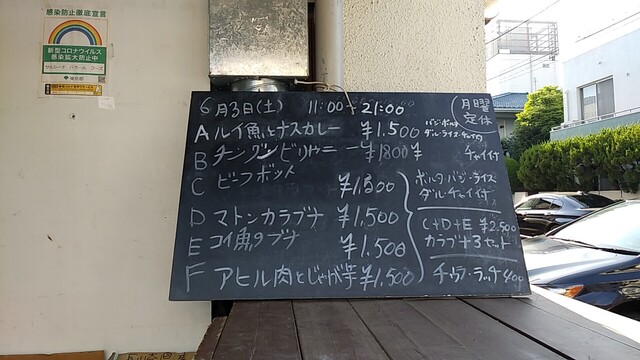 感染防止徹底宣言
新型コロナウイルス
感染拡大防止中
6月3日(土) 11:00→21:00
月曜
定休
A ルイ魚とナスカレー ¥1.500
バジ・ボルタ
ダル・ライス・チャイ付
B チングンビリヤーニー ¥1800¥ チャイ付
C ビーフボット ¥1.500
ボルタ・バジ・ライス
ダル・チャイ付
D マトンカラブナ ¥1,500
C+D+E ¥2.500
カラブナ3セット
E コイ魚のブナ ¥1.500
F アヒル肉とじゃが芋 ¥1,500
チョウラッチ 400